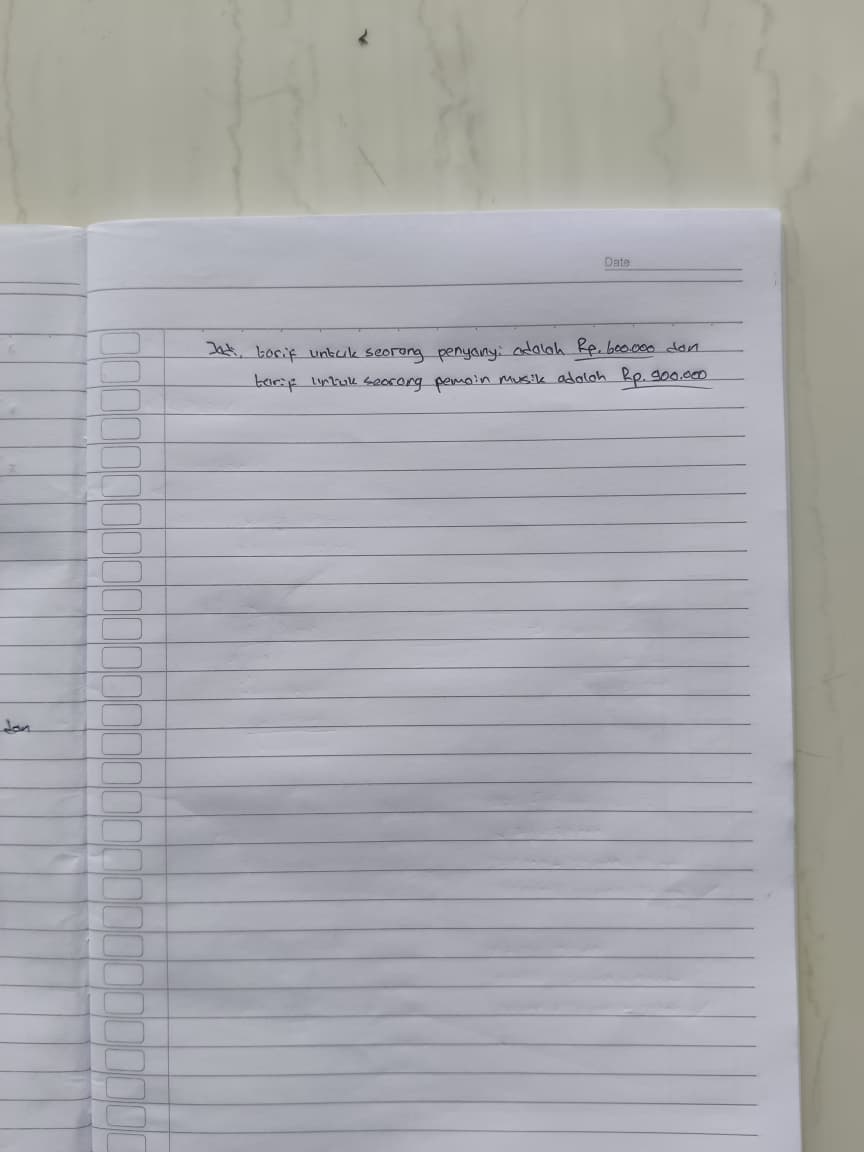 Date
Jadi, tarif untuk seorang penyanyi adalah Rp. 600.000 dan
tarif untuk seorang pemain musik adalah Rp. 900.000
dan